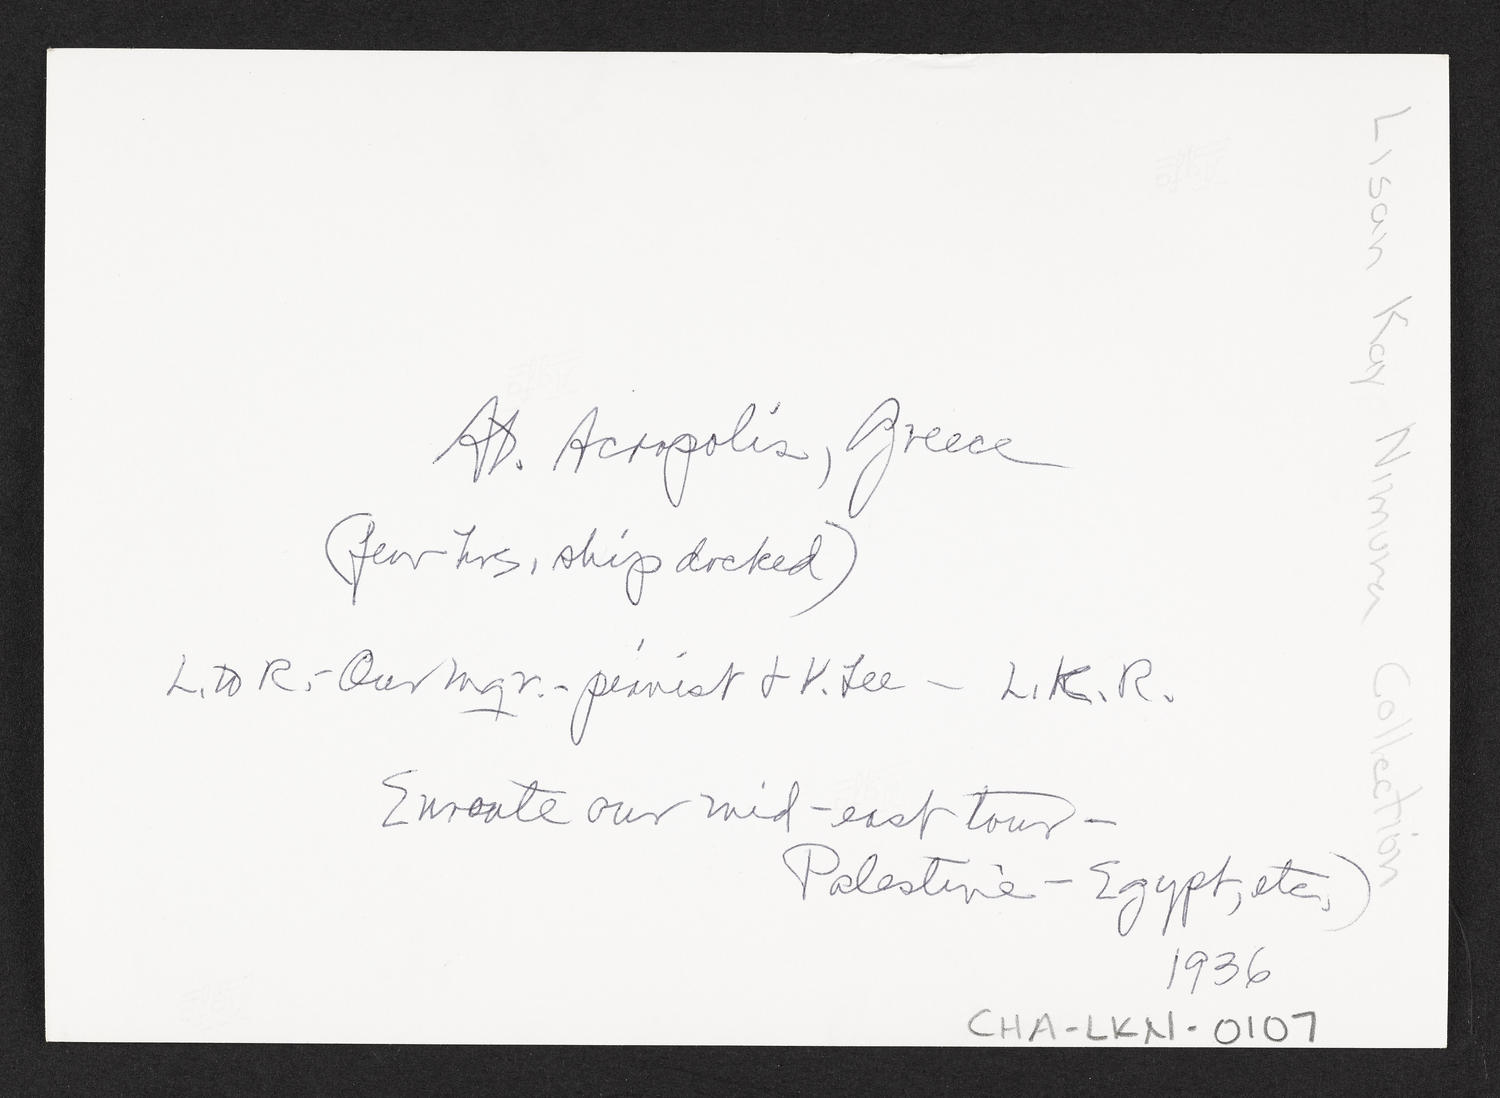 At. Acropolis, Greece
(few hrs, ship docked)
L. to R. - Our mgr. - pianist & V. Lee - L.K.R.
Enroute our mid-east tour -
Palestine - Egypt, etc.)
1936
CHA-LKN-0107
Lisan Kay Nimura Collection